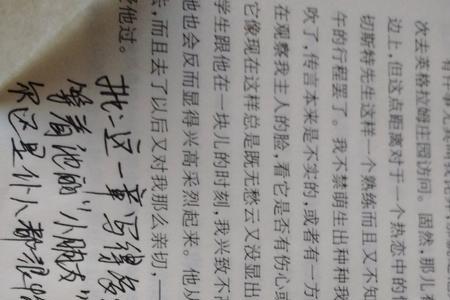 次去英格拉姆庄园访问。固然,那儿
边上,但这点距离对于一个热恋中的
切斯特先生这样一个熟练而且又不知
午的行程罢了。我不禁萌生出种种我
吹了,传言本来是不实的,或者有一方
在观察我主人的脸,看它是否有伤心或
它像现在这样总是既无愁云又没显出
学生跟他在一块儿的时刻,我兴致不
他也会反而显得兴高采烈起来。他从
去,而且去了以后又对我那么亲切,—
他过。
这一章写得
着他的“小朋友”
你还是什么都